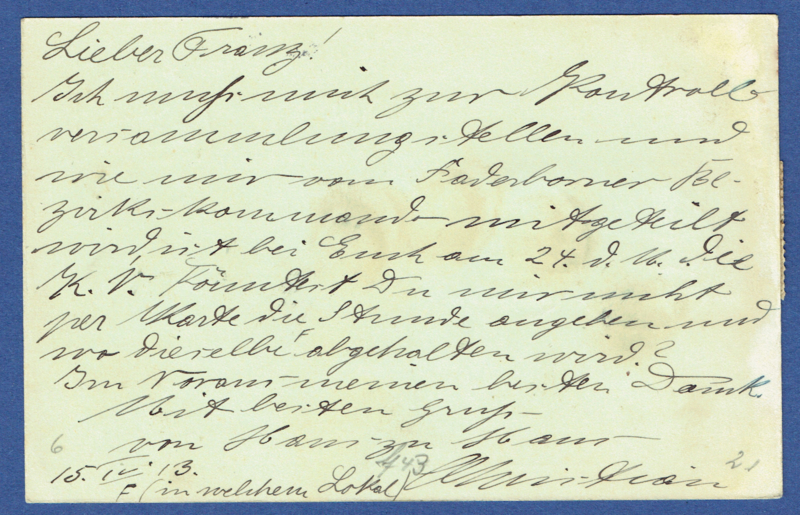 Lieber Franz!
Ich muss mich zur Kontroll-
versammlung stellen und
wie mir vom Paderborner Be-
zirkskommando mitgeteilt
wird, ist bei Euch am 24. d. M. die
K. V. Könntest Du mir nicht
per Karte die Stunde angeben und
wo dieselbe F abgehalten wird?
Im Voraus meinen besten Dank.
Mit besten Gruß
von Haus zu Haus
6
443
Christian 21
15. IV. 13.
F (in welchem Lokal)